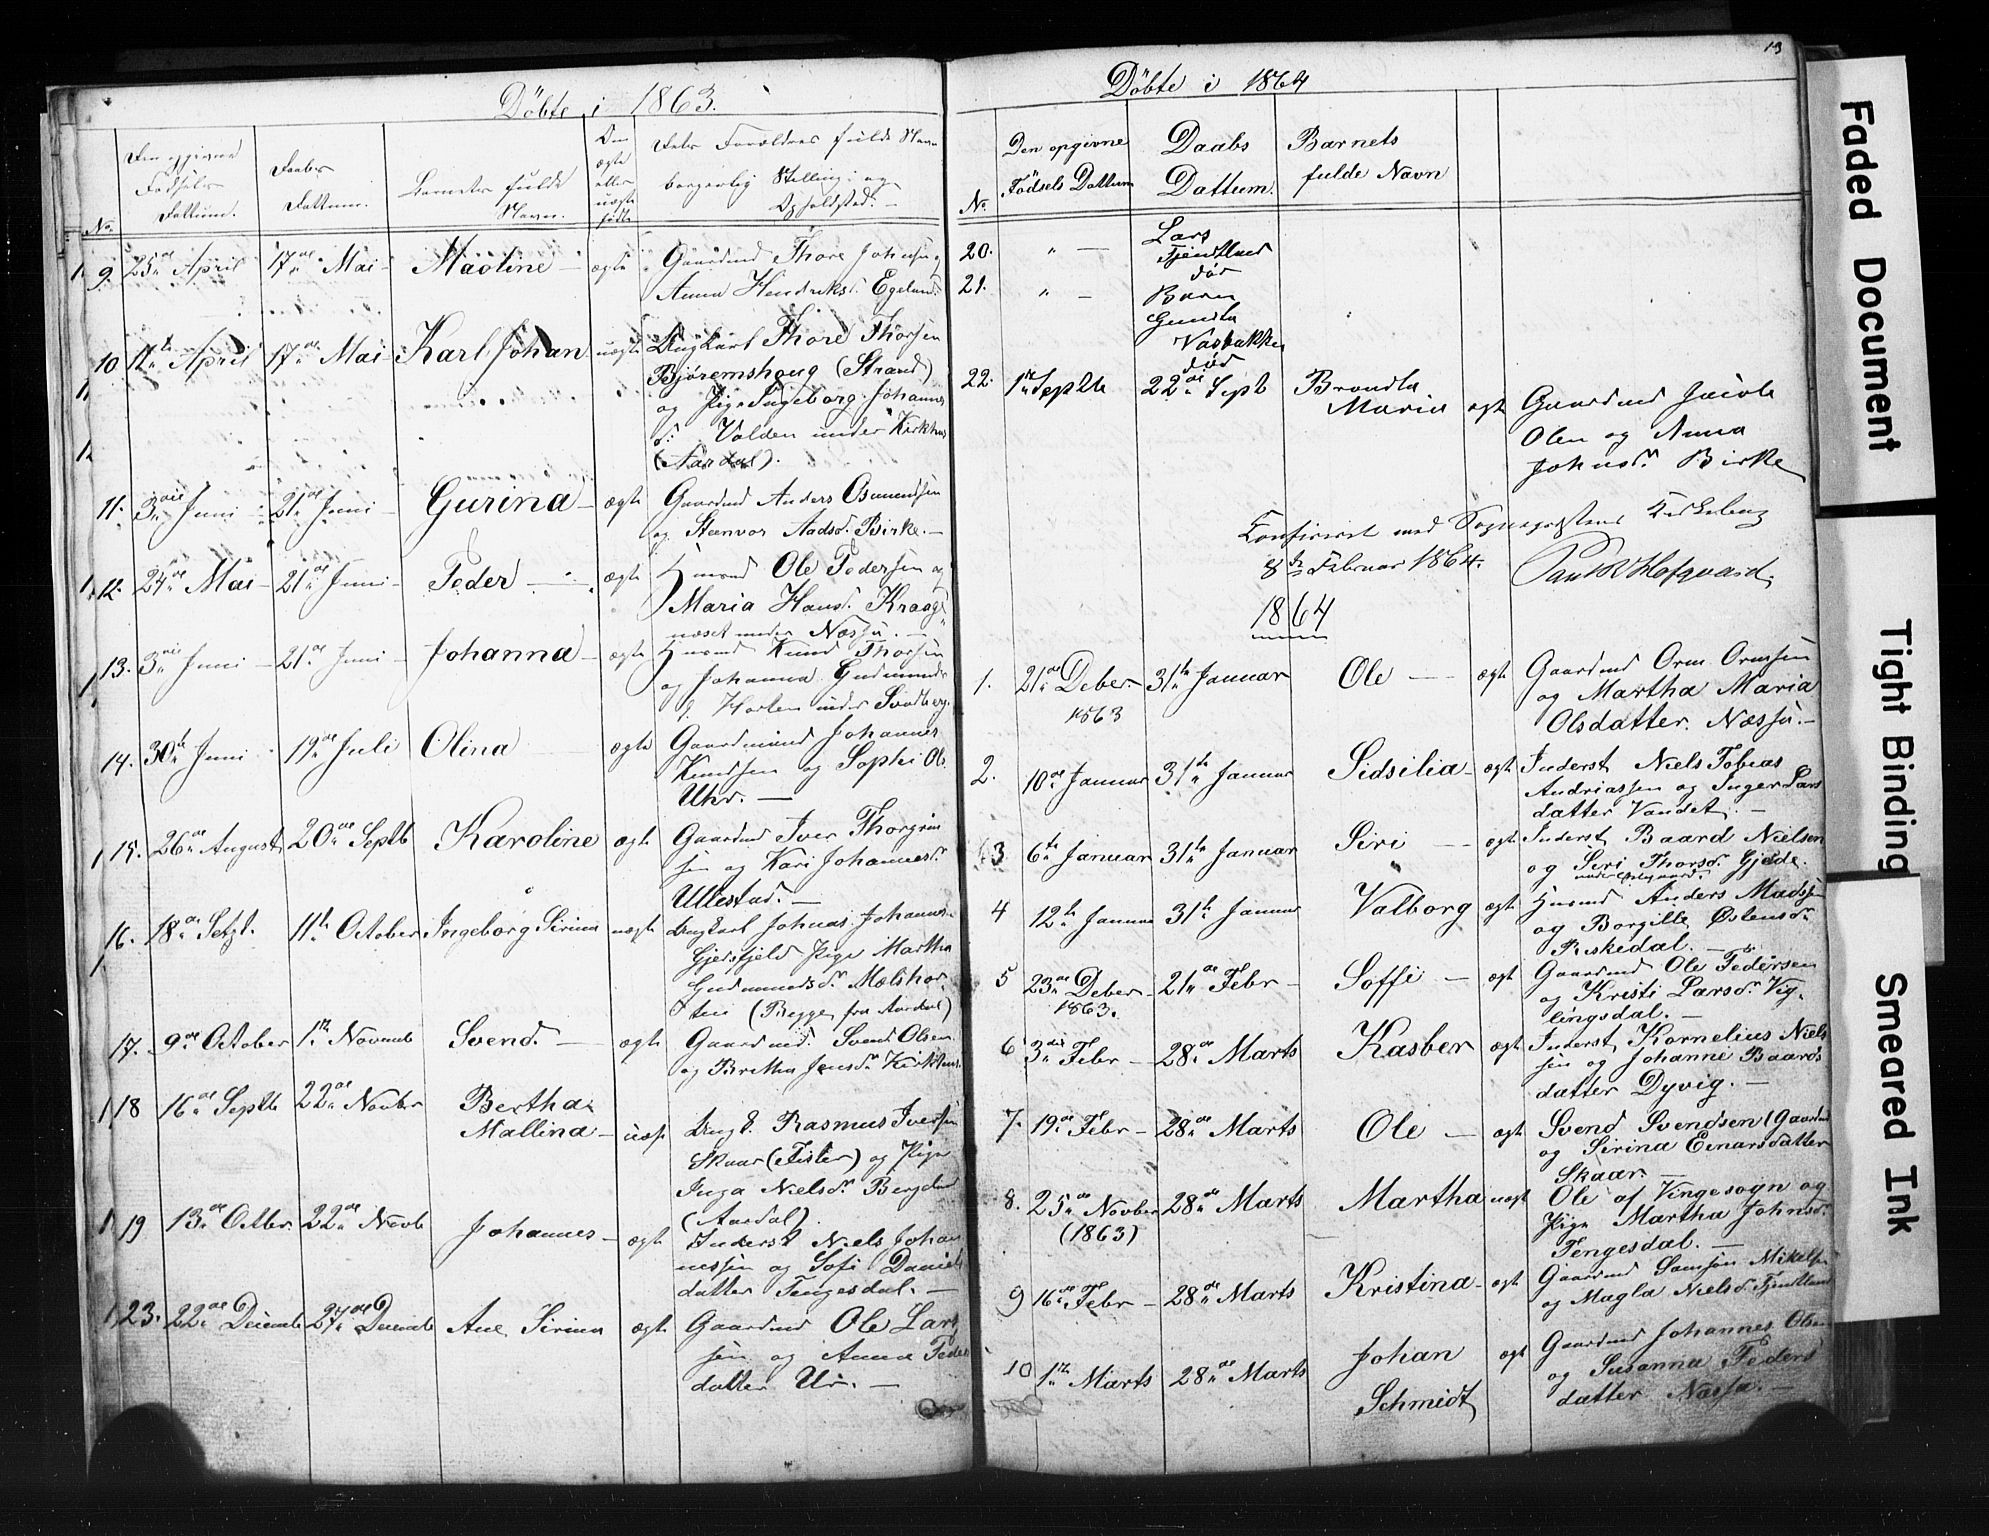 Döbte i 1863.
No.
Den opgivne
Fødsels
Dattum.
Daabs
Dattum.
Barnets fulde
Navn.
Den
ægte
eller
uægte
fødte
Dets Forældres fulde Navn
borgerlig Stilling og
Opholdsted. —
9. 25de April 17de Mai — Maoline — ægte Gaardmd Thore Johnsen og
Anna Hendriksd. Egeland.
10 11te April 17de Mai — Karl Johan uægte Ungkarl Thore Thorsen
Bjøremshoug (Strand)
og Pige Ingeborg Johannes
d: Volden under Kirkhus
(Aardal).
11. 3die Juni — 21de Juni — Gurina — ægte Gaardmd Anders Osmundsen
og Steenvor Aadsd. Birke. —
12. 24de Mai — 21de Juni — Peder — ægte Husmd Ole Pedersen og
Maria Hansd. Kraag
næset under Næssa. —
13. 3die Juni — 21de Juni — Johanna — ægte Husmd Knud Thorsen
og Johanna Gudmunds
d. Horten under
14. 30te Juni 19de Juli Olina — ægte Gaardmand Johannes
Knudsen og Sophi Ols
Uhr. —
15. 26de August 20de Septb Karoline ægte Gaardmd Iver Thorgrim
sen og Kari Johannesd.
Ullestad. —
16. 18de Sept. 11te October Ingeborg Sirina uægte Ungkarl Johnas Johannes
Gjersfjeld Pige Martha
Gudmundsdr. Mælshor
ten (Begge fra Aardal)
17. 9de October 1te Novemb Svend. — ægte Gaardmd. Svend Olsen
og Britha Jensdr. Kirkhus.
18 16de Septb 22de Novbr Bertha
Mallina — uægt Ungk. Rasmus Iversen
Skaar (Fister) og Pige
Inga Nielsdr. Bergeland
(Aardal).
19 13de Octbr. 22de Novb Johannes — ægte Inderst Niels Johan
nessen og Sofi Daniels
datter Tengesdal. —
23. 22de Decemb 27de Decemb Ane Sirina ægte Gaardmd Ole Lars
sen og Anna Peders
datter Ur. —
13
Döbte i 1864
No.
Den opgivne
Födsels Dattum
Daabs
Dattum.
Barnets
fulde Navn
20. " — Lars
Fjendtland
død
21. " — Barn
Gunda
Vasbakken
død
22. 1te Septb 22de Sept Brondla
Maria ægt Gaardmd Jacob
Olsen og Anna
Johnsdr. Birke
Confereret med Sognepræstens Kirkebog
8de Februar 1864.
1864
1. 21de Decber. 31te Januar Ole — ægt Gaardmd Orm Ormsen
1863 og Martha Maria
Olsdatter Næssa. —
2. 10de Januar 31te Januar Sidsilia — ægt Inderst Niels Tobias
Andriassen og Inger Lars
datter Vandet. —
3 6te Januar 31te Januar Siri — ægt Inderst Baard Nielsen
og Siri Thorsdr. Gjøde.
4 12te Januar 31te Januar Valborg ægt Husmd Anders Madsen
og Borgille Østensdr.
Riskedal. —
5 23de Decber — 21de Febr — Soffi — ægt Gaardmd Ole Pedersen
1863. og Kristi Larsdr. Vig
lingsdal. —
6 3die Febr — 28de Marts Kasber ægt Inderst Kornelius Niels
sen og Johanne Baards
datter Dyvig. —
7. 19de Febr — 28de Marts Ole — ægt Svend Svendsen (Gaardmd
og Sirina Einarsdatter
Skaar —
8. 25de Novber 28de Marts Martha uægt Ole af Vingesogn og
(1863) Pige Martha Johnsdr.
Tengesdal. —
9 16de Febr — 28de Marts Kristina — ægt Gaardmd Samson Mikelsen
og Magla Nielsd. Fjendtland
10 1te Marts 28de Marts Johan
Schmidt ægt Gaardmd Johannes Olsen
og Susanna Peders
datter Næssa. —
Faded Document
Tight Binding
Smeared Ink